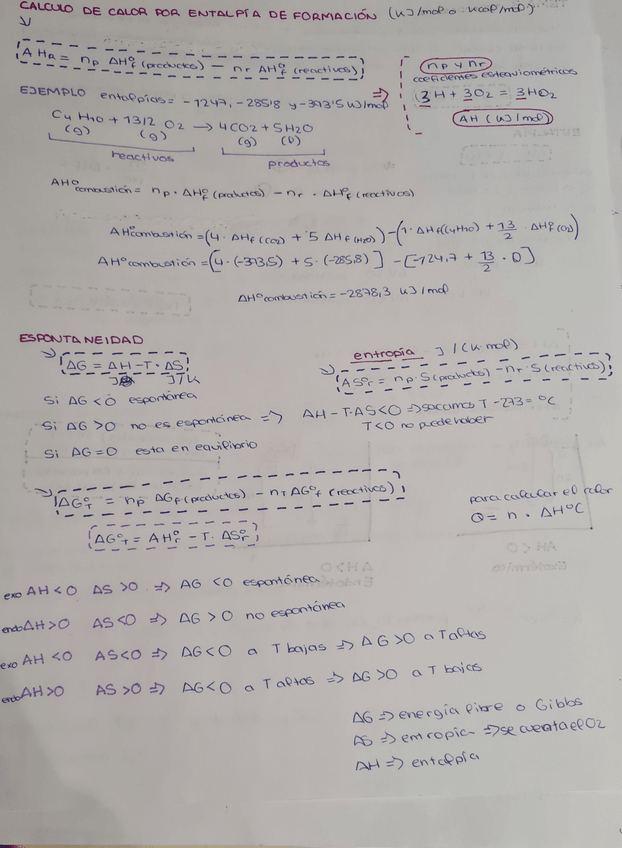 CALCULO DE CALOR POR ENTALPÍA DE FORMACIÓN (kJ/mol o kcal/mol)
ΔHR = np ΔHºf (productos) - nr ΔHºf (reactivos)
np y nr
coeficientes estequiométricos
3H + 3O2 = 3HO2
ΔH (kJ/mol)
EJEMPLO entalpías = -124'7, -285'8 y -393'5 kJ/mol =>
C4H10 + 13/2 O2 → 4CO2 + 5H2O
(g) (g) (g) (l)
reactivos productos
ΔHº combustión = np · ΔHºf (productos) - nr · ΔHºf (reactivos)
ΔHº combustión = (4 · ΔHf (CO2) + 5 ΔHf (H2O)) - (1 · ΔHf (C4H10) + 13/2 · ΔHºf (O2))
ΔHº combustión = [4 · (-393,5) + 5 · (-285,8)] - [-124,7 + 13/2 · 0]
ΔHº combustión = -2878,3 kJ/mol
ESPONTANEIDAD
ΔG = ΔH - T · ΔS
J/K
Si ΔG < 0 espontánea
Si ΔG > 0 no es espontánea => ΔH - T·ΔS < 0 => sacamos T - 273 = ºC
T < 0 no puede haber
Si ΔG = 0 esta en equilibrio
entropía J/(K·mol)
ΔSºr = np · S (productos) - nr · S (reactivos)
ΔGºT = np ΔGf (productos) - nT ΔGºf (reactivos)
ΔGºT = ΔHºr - T · ΔSºr
para calcular el calor
Q = n · ΔHºC
exo ΔH < 0 ΔS > 0 => ΔG < 0 espontánea
endo ΔH > 0 ΔS < 0 => ΔG > 0 no espontánea
exo ΔH < 0 ΔS < 0 => ΔG < 0 a T bajas => ΔG > 0 a T altas
endo ΔH > 0 ΔS > 0 => ΔG < 0 a T altas => ΔG > 0 a T bajas
ΔG => energía libre o Gibbs
ΔS => entropia => se cuenta el O2
ΔH => entalpía